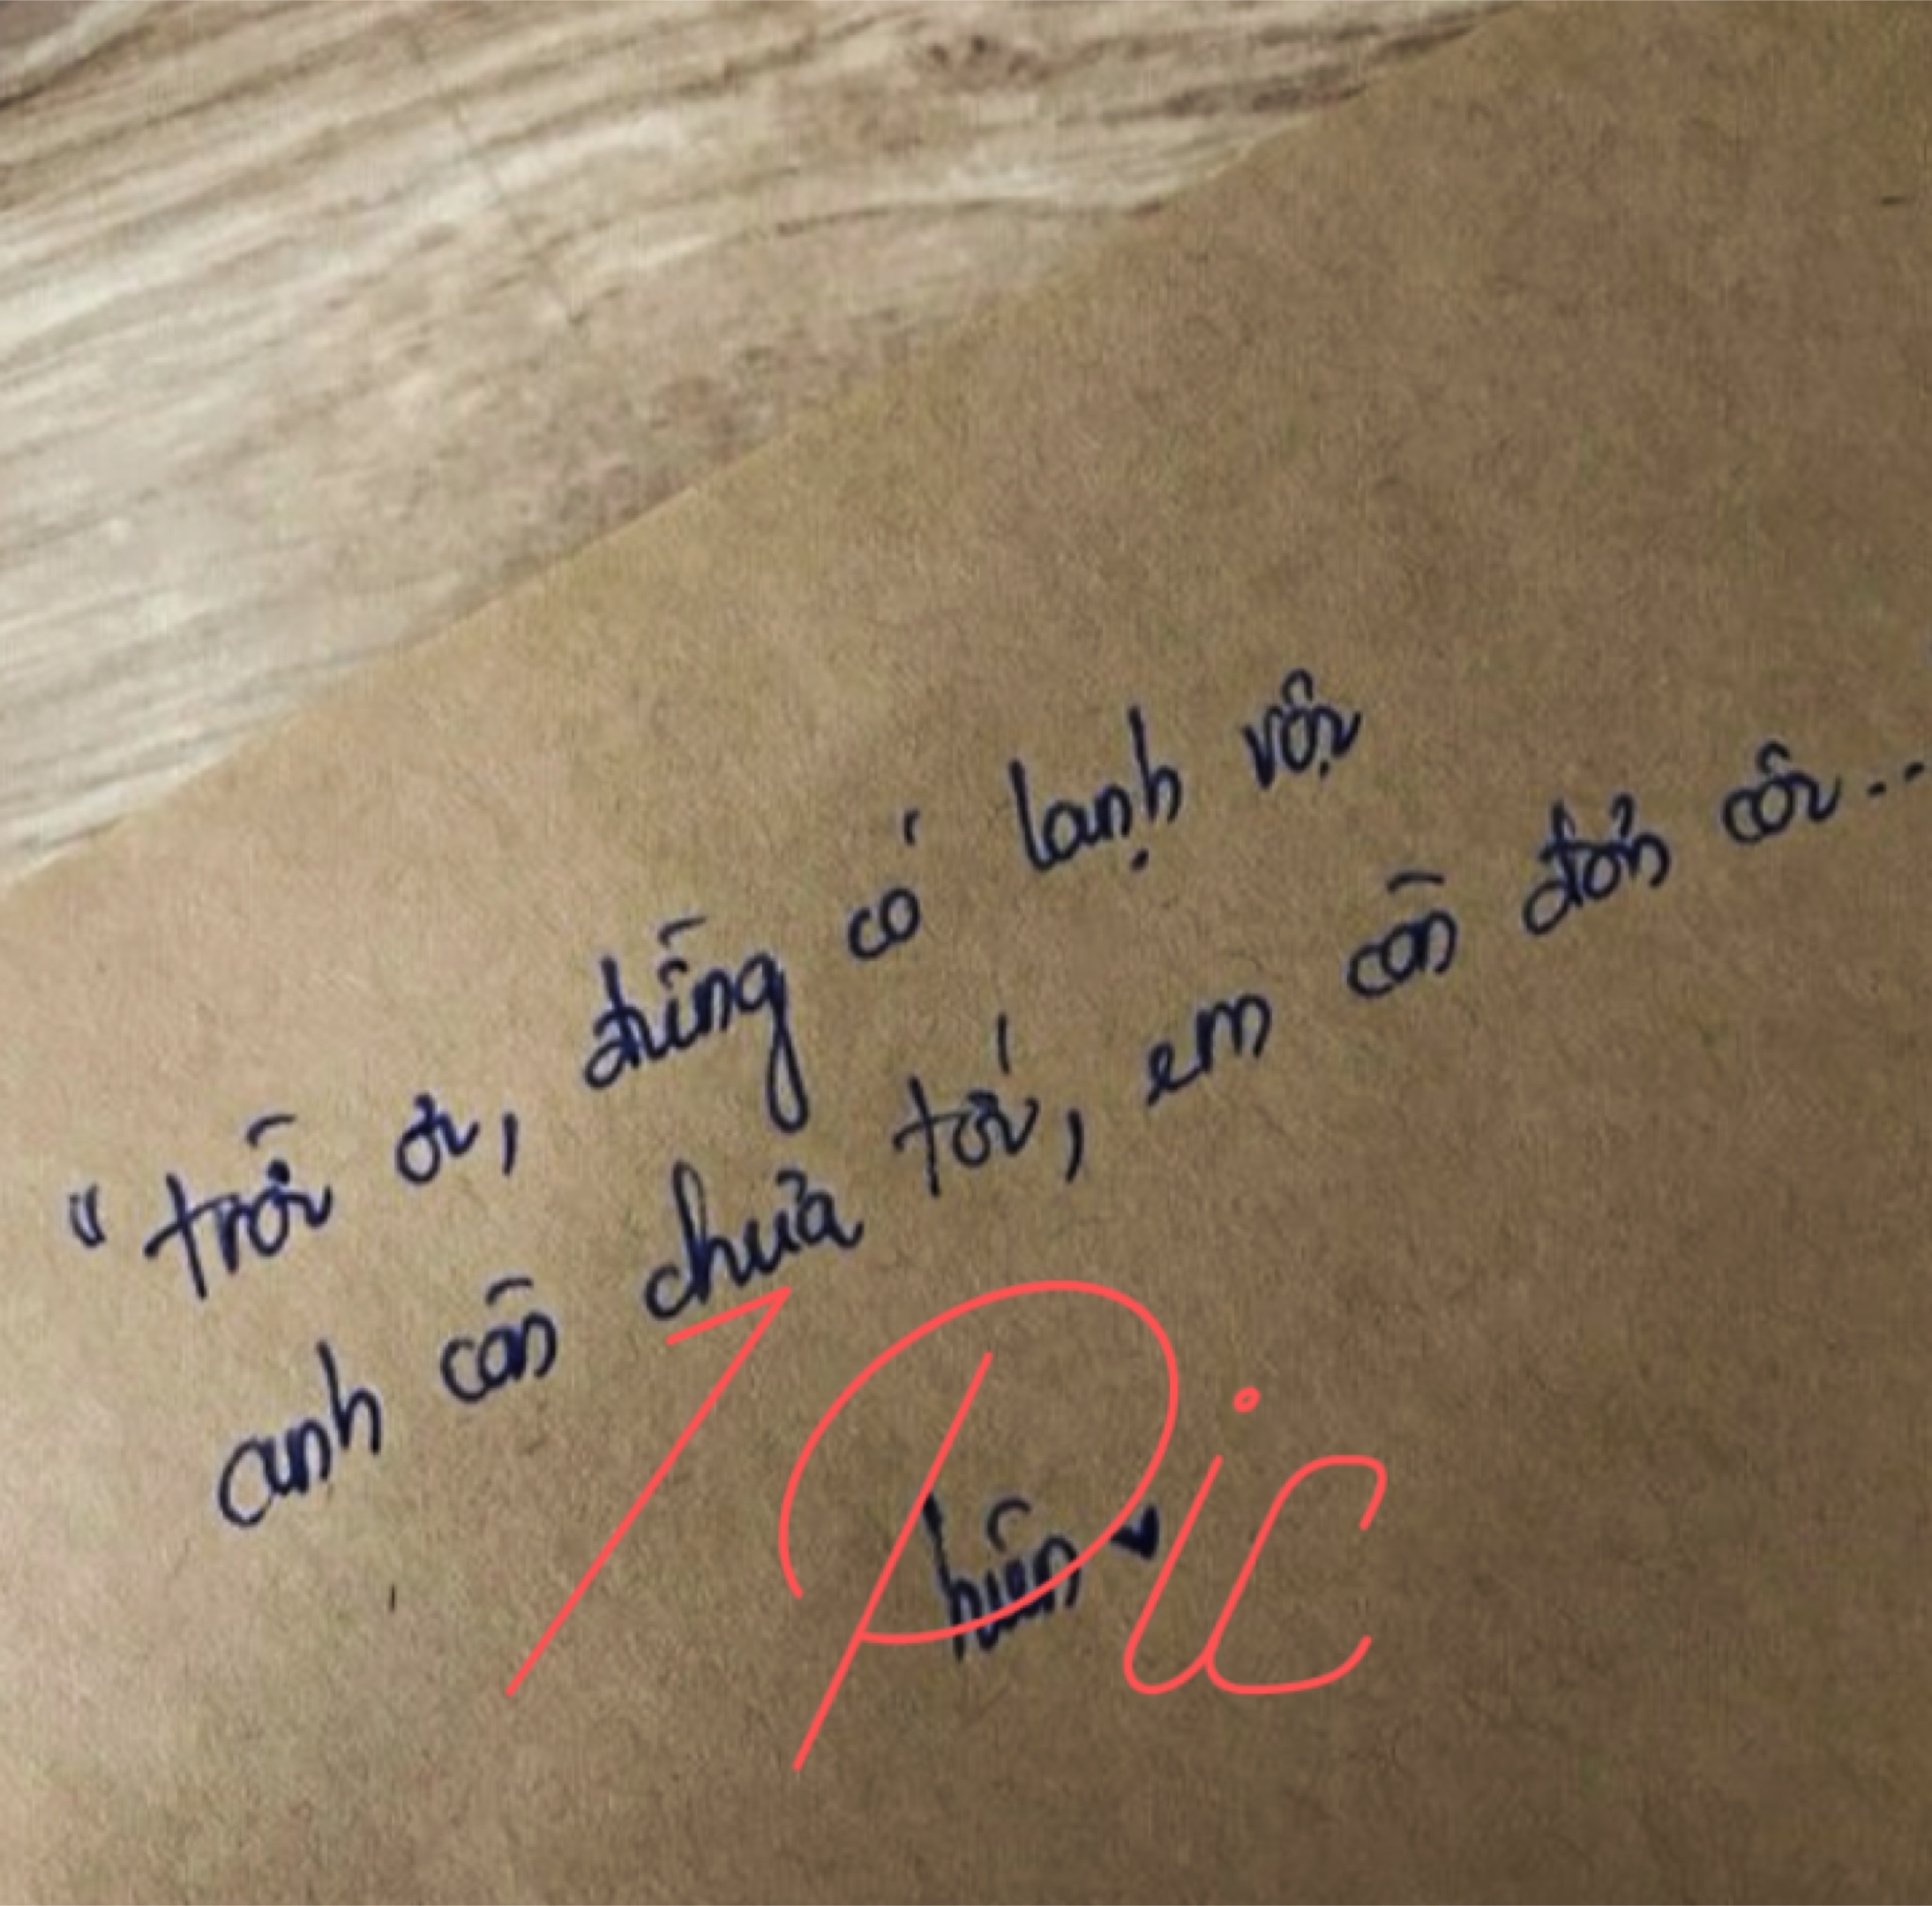 "trời ơi, đừng có lạnh vội
anh còn chưa tới, em còn đơn côi...
hiên
1 Pic